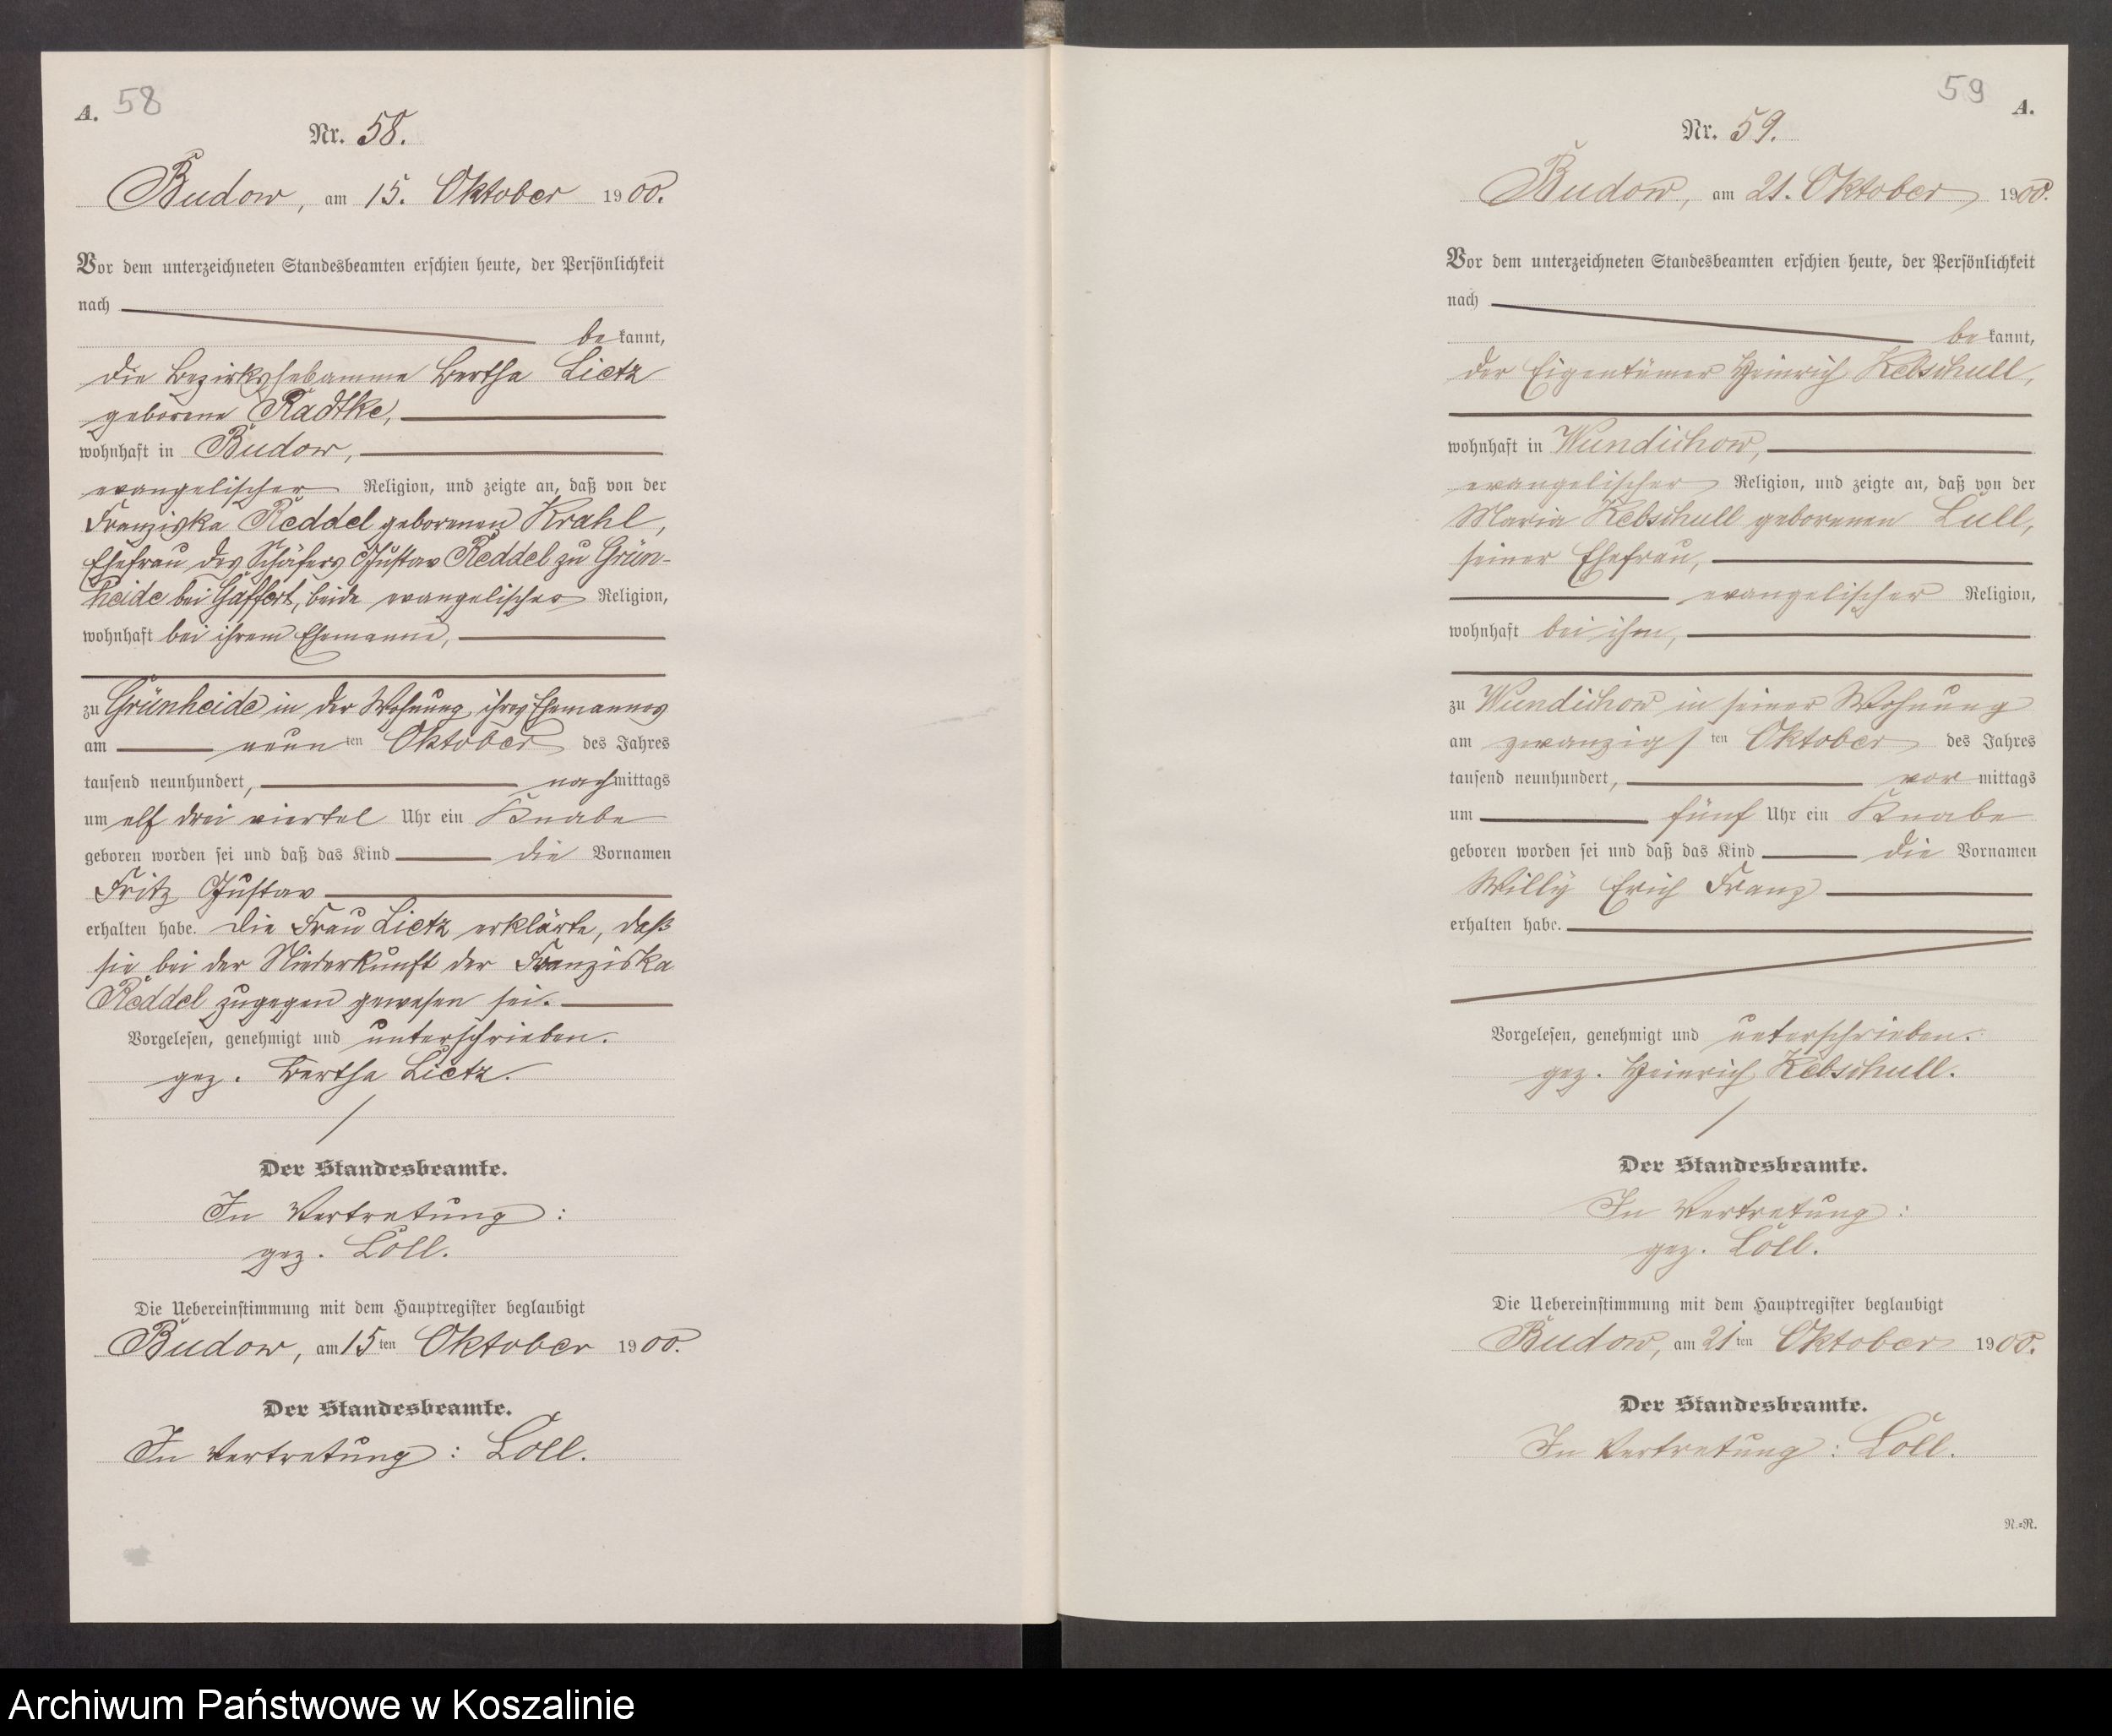 A. 58
Nr. 58.
Budow, am 15. Oktober 1900.
Vor dem unterzeichneten Standesbeamten erschien heute, der Persönlichkeit
nach
be kannt,
die Bezirkshebamme Bertha Lietz
geborene Radtke,
wohnhaft in Budow,
evangelischer Religion, und zeigte an, daß von der
Franziska Reddel geborenen Krahl,
Ehefrau des Schäfers Gustav Reddel zu Grün-
heide bei Gaffert, beide evangelischer Religion,
wohnhaft bei ihrem Ehemanne,
zu Grünheide in der Wohnung ihres Ehemannes
am neun ten Oktober des Jahres
tausend neunhundert, nachmittags
um elf drei viertel Uhr ein Knabe
geboren worden sei und daß das Kind die Vornamen
Fritz Gustav
erhalten habe. Die Frau Lietz erklärte, daß
sie bei der Niederkunft der Franziska
Reddel zugegen gewesen sei.
Vorgelesen, genehmigt und unterschrieben.
gez. Bertha Lietz.
Der Standesbeamte.
In Vertretung:
gez. Loll.
Die Uebereinstimmung mit dem Hauptregister beglaubigt
Budow, am 15ten Oktober 1900.
Der Standesbeamte.
In Vertretung: Loll.
59 A.
Nr. 59.
Budow, am 21. Oktober 1900.
Vor dem unterzeichneten Standesbeamten erschien heute, der Persönlichkeit
nach
be kannt,
der Eigentümer Heinrich Kebschull,
wohnhaft in Wundichow,
evangelischer Religion, und zeigte an, daß von der
Maria Kebschull geborenen Lull,
seiner Ehefrau,
evangelischer Religion,
wohnhaft bei ihm,
zu Wundichow in seiner Wohnung
am zwanzigs ten Oktober des Jahres
tausend neunhundert, vor mittags
um fünf Uhr ein Knabe
geboren worden sei und daß das Kind die Vornamen
Willy Erich Franz
erhalten habe.
Vorgelesen, genehmigt und unterschrieben.
gez. Heinrich Kebschull.
Der Standesbeamte.
In Vertretung:
gez. Loll.
Die Uebereinstimmung mit dem Hauptregister beglaubigt
Budow, am 21ten Oktober 1900.
Der Standesbeamte.
In Vertretung: Loll.
R.=R.
Archiwum Państwowe w Koszalinie